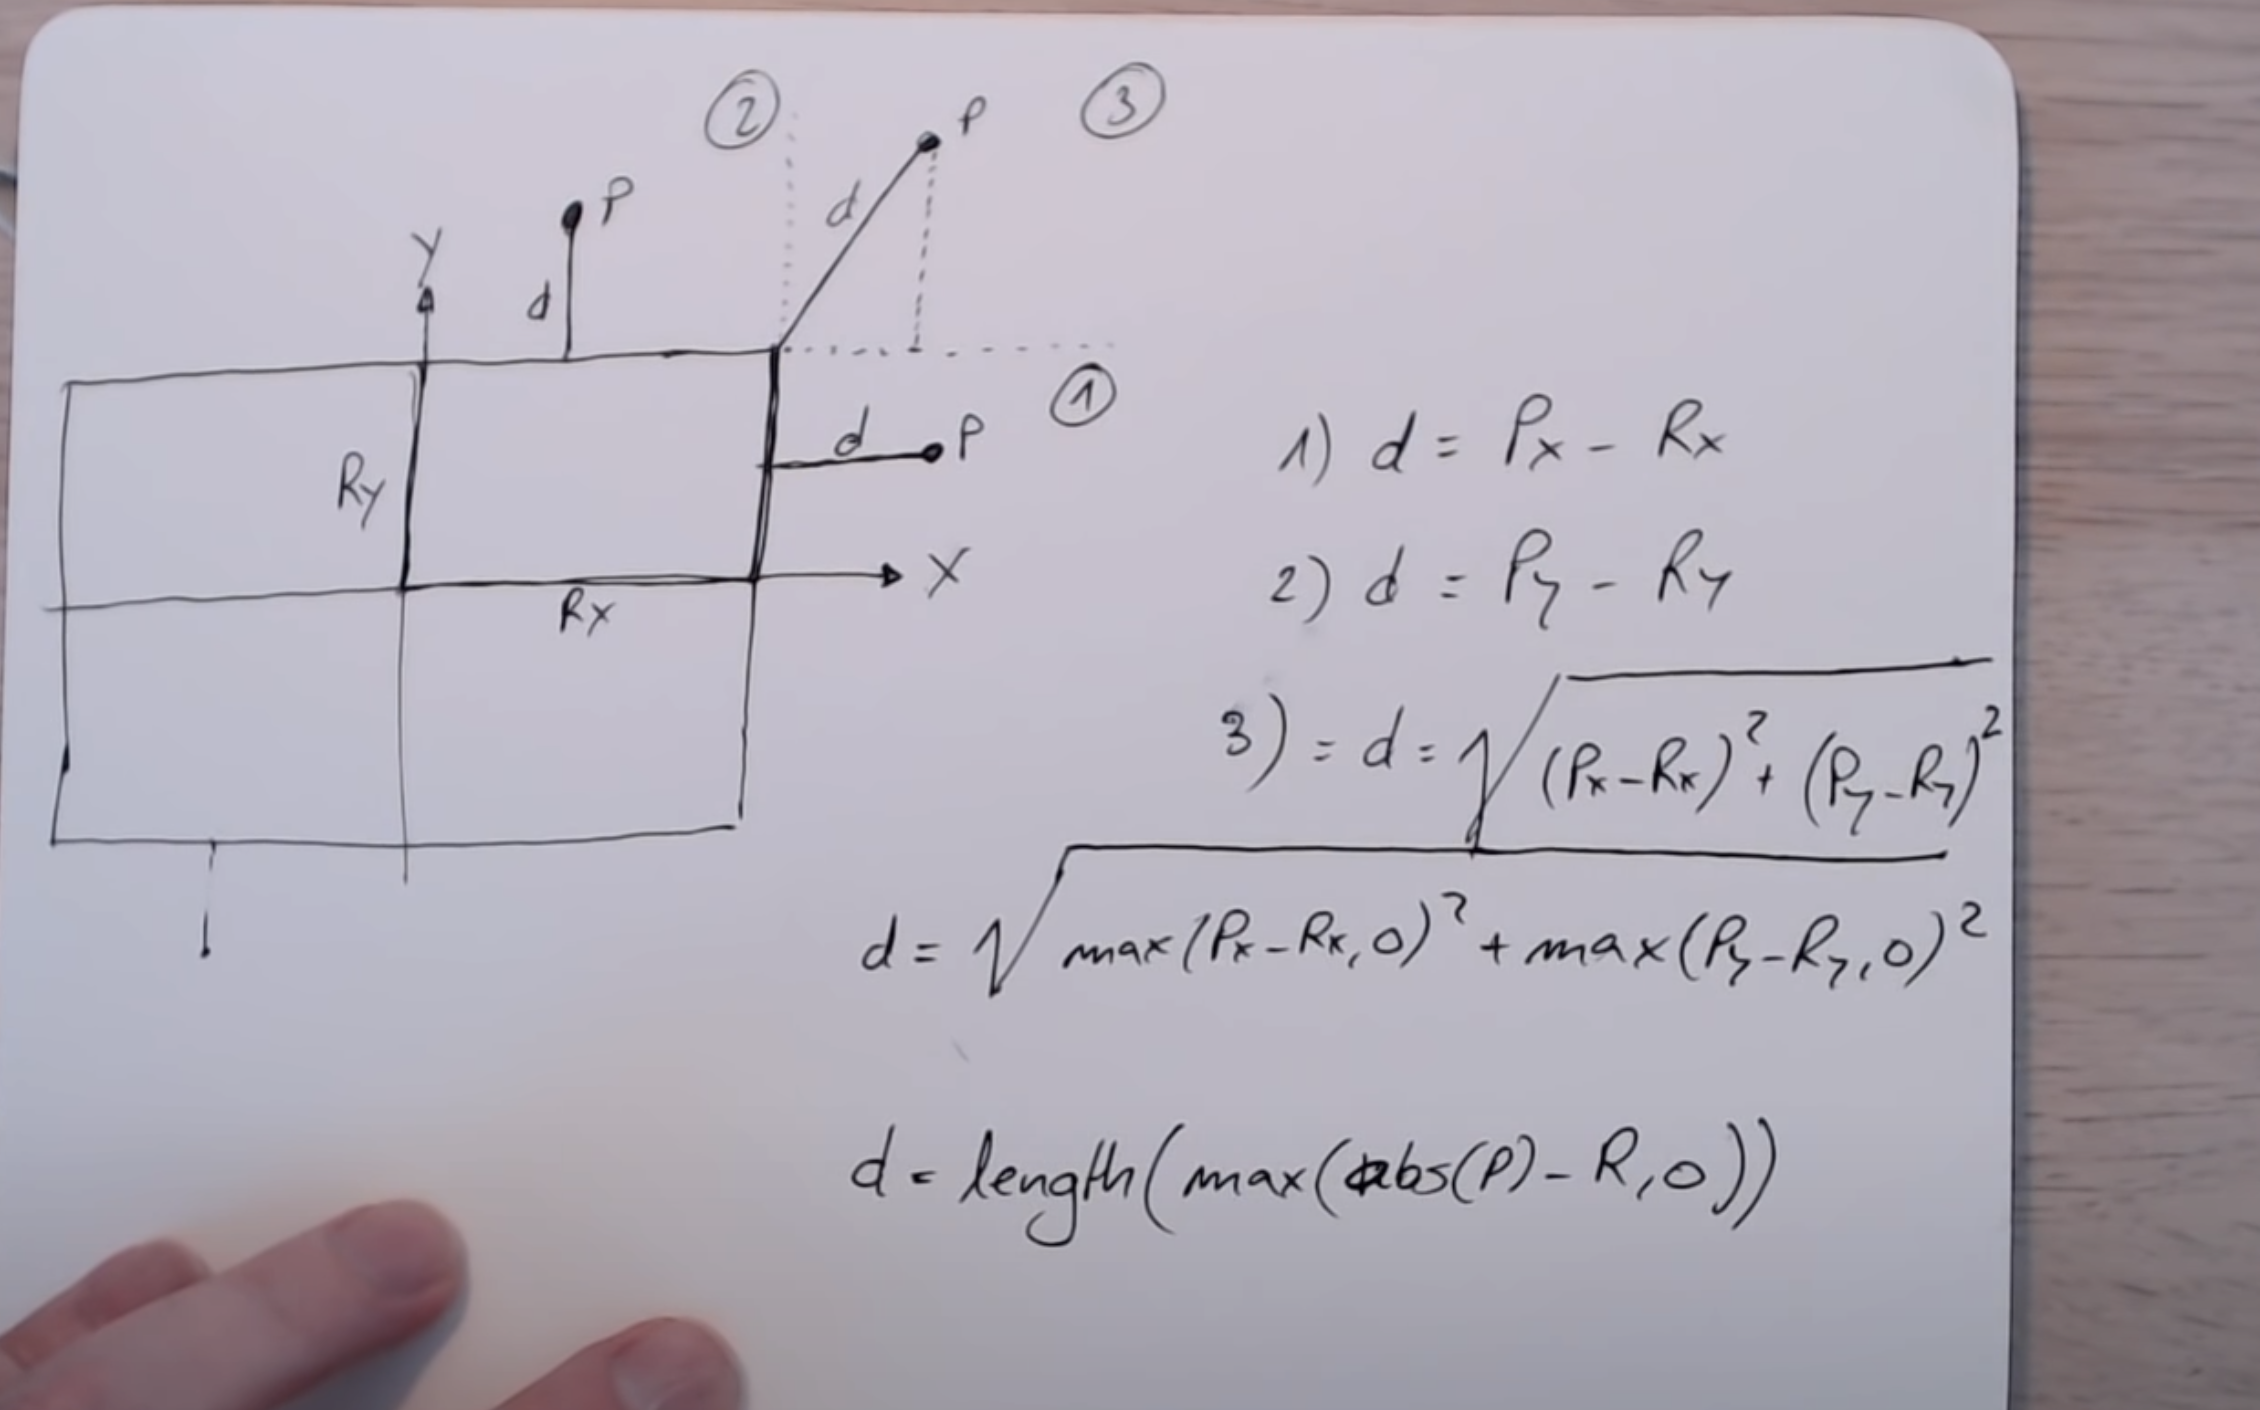 2
3
P
d
P
Y
d
1
d P
Ry
X
Rx
1) d = Px - Rx
2) d = Py - Ry
3) = d = √(Px-Rx)² + (Py-Ry)²
d = √max(Px-Rx,0)² + max(Py-Ry,0)²
d = length(max(abs(P)-R,0))